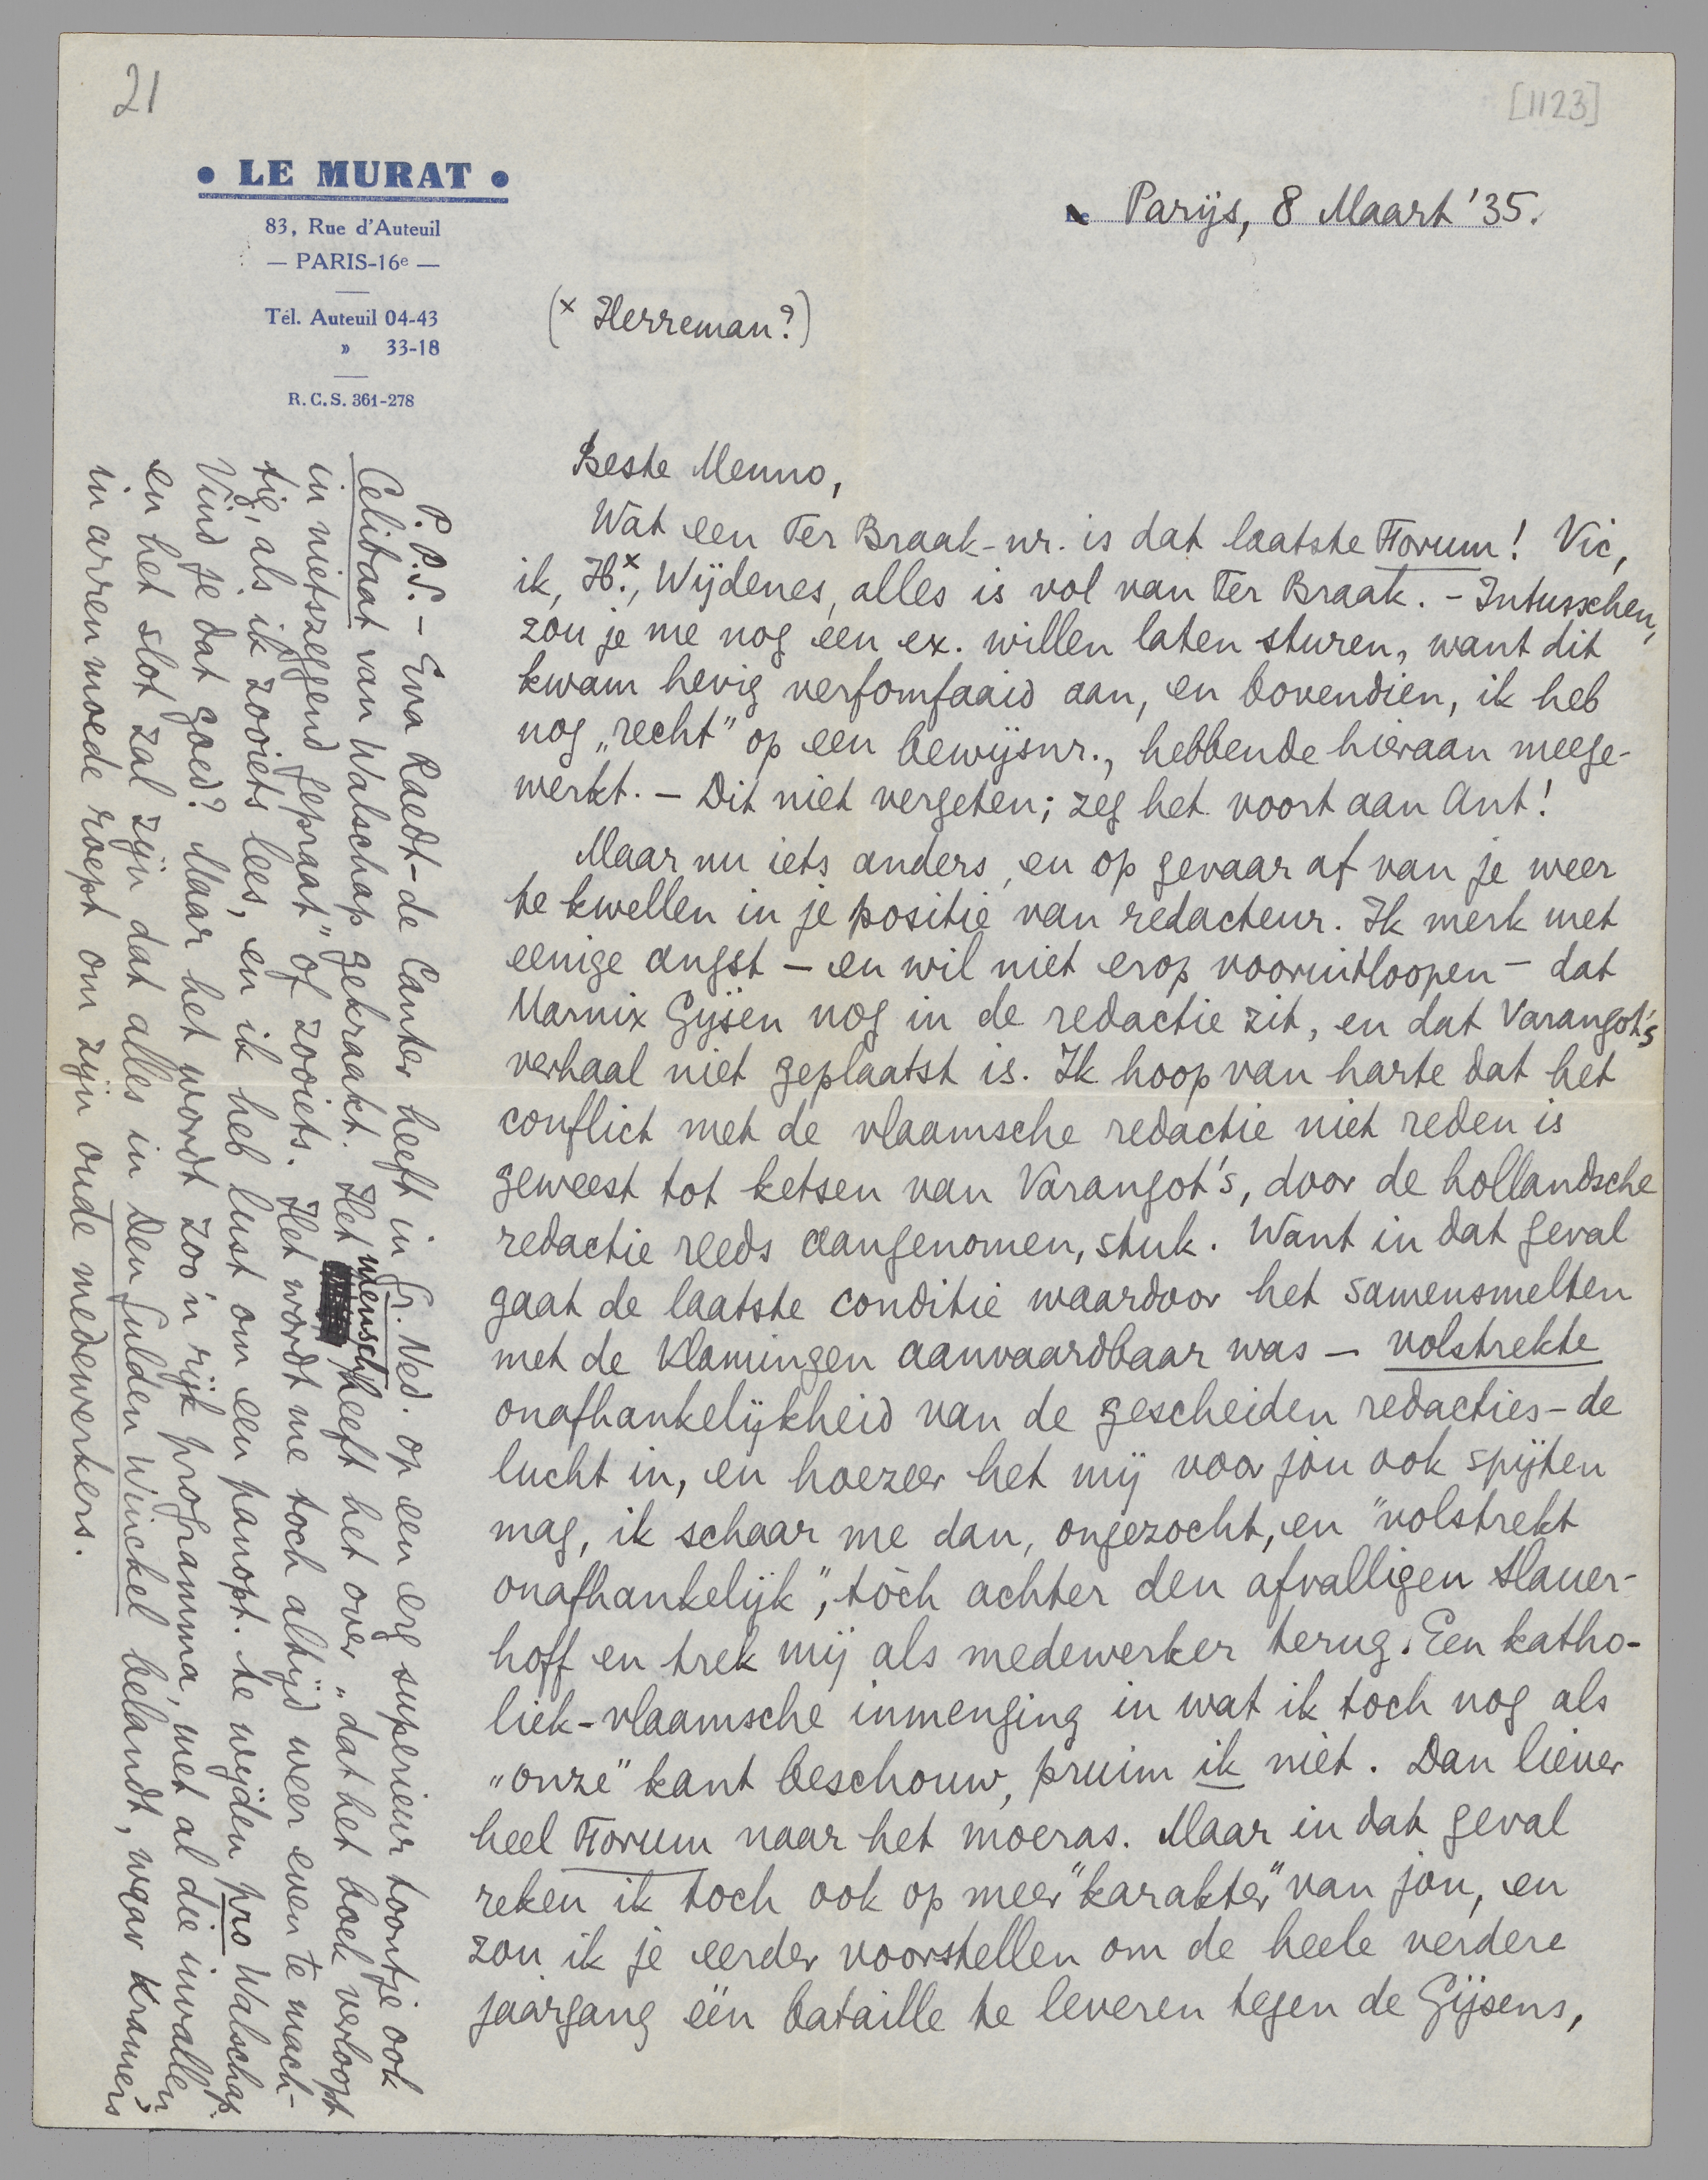 21
[1123]
• LE MURAT •
83, Rue d'Auteuil
— PARIS-16e —
Tél. Auteuil 04-43
» 33-18
R. C. S. 361-278
Parijs, 8 Maart '35.
(x Herreman?)
Beste Menno,
Wat een Ter Braak-nr. is dat laatste Forum! Vic,
ik, H.x, Wijdenes, alles is vol van Ter Braak. - Intusschen,
zou je me nog een ex. willen laten sturen, want dit
kwam hevig verfomfaaid aan, en bovendien, ik heb
nog „recht" op een bewijsnr., hebbende hieraan meege-
werkt. - Dit niet vergeten; zeg het voort aan Ant!
Maar nu iets anders, en op gevaar af van je weer
te kwellen in je positie van redacteur. Ik merk met
eenige angst - en wil niet erop vooruitloopen - dat
Marnix Gijsen nog in de redactie zit, en dat Varangot's
verhaal niet geplaatst is. Ik hoop van harte dat het
conflict met de vlaamsche redactie niet reden is
geweest tot ketsen van Varangot's, door de hollandsche
redactie reeds aangenomen, stuk. Want in dat geval
gaat de laatste conditie waardoor het samensmelten
met de Vlamingen aanvaardbaar was - volstrekte
onafhankelijkheid van de gescheiden redacties - de
lucht in, en hoezeer het mij voor jou ook spijten
mag, ik schaar me dan, ongezocht, en "volstrekt
onafhankelijk", tòch achter den afvalligen Slauer-
hoff en trek mij als medewerker terug. Een katho-
liek-vlaamsche inmenging in wat ik toch nog als
„onze" kant beschouw, pruim ik niet. Dan liever
heel Forum naar het moeras. Maar in dat geval
reken ik toch ook op meer "karakter" van jou, en
zou ik je eerder voorstellen om de heele verdere
jaargang één bataille te leveren tegen de Gijsens,
P.P.S. - Eva Raedt-de Canter heeft in Gr. Ned. op een erg superieur toontje ook
Celibaat van Walschap gekraakt. Het mensch heeft het over „dat het boek verloopt
in nietszeggend gepraat" of zooiets. Het wordt me toch altijd weer even te mach-
tig, als ik zooiets lees, en ik heb lust om een panopt. te wijden pro Walschap.
Vind je dat goed? Maar het wordt zoo'n rijk programma, met al die invallen
en het slot zal zijn dat alles in Den Gulden Winckel belandt, waar Kramers
in arren moede roept om zijn oude medewerkers.